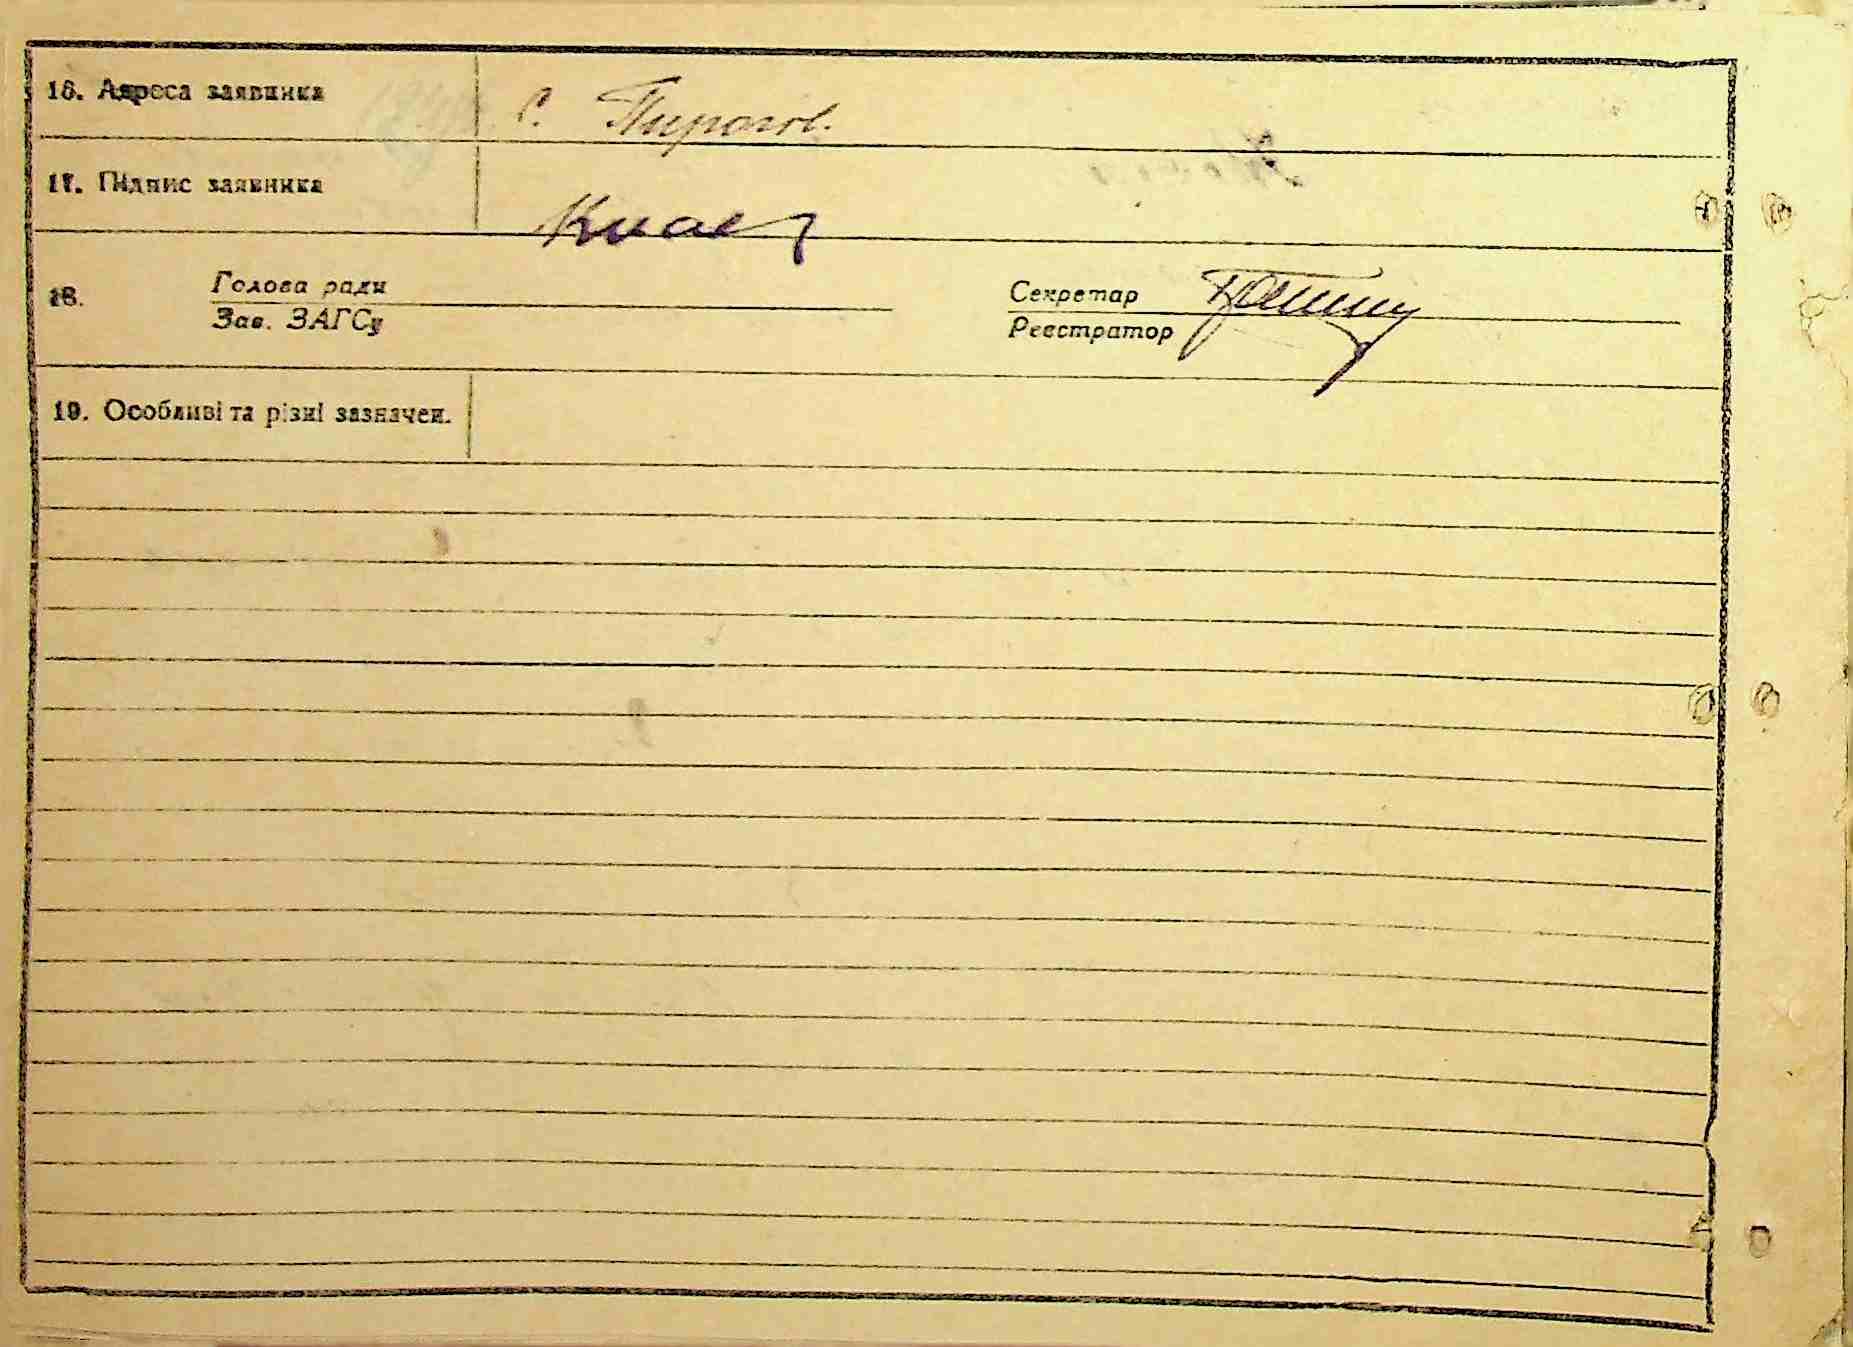 16. Адреса заявника С. Пирогов.
17. Підпис заявника
18. Голова ради Секретар
Зав. ЗАГСу Реєстратор
19. Особливі та різні зазначен.